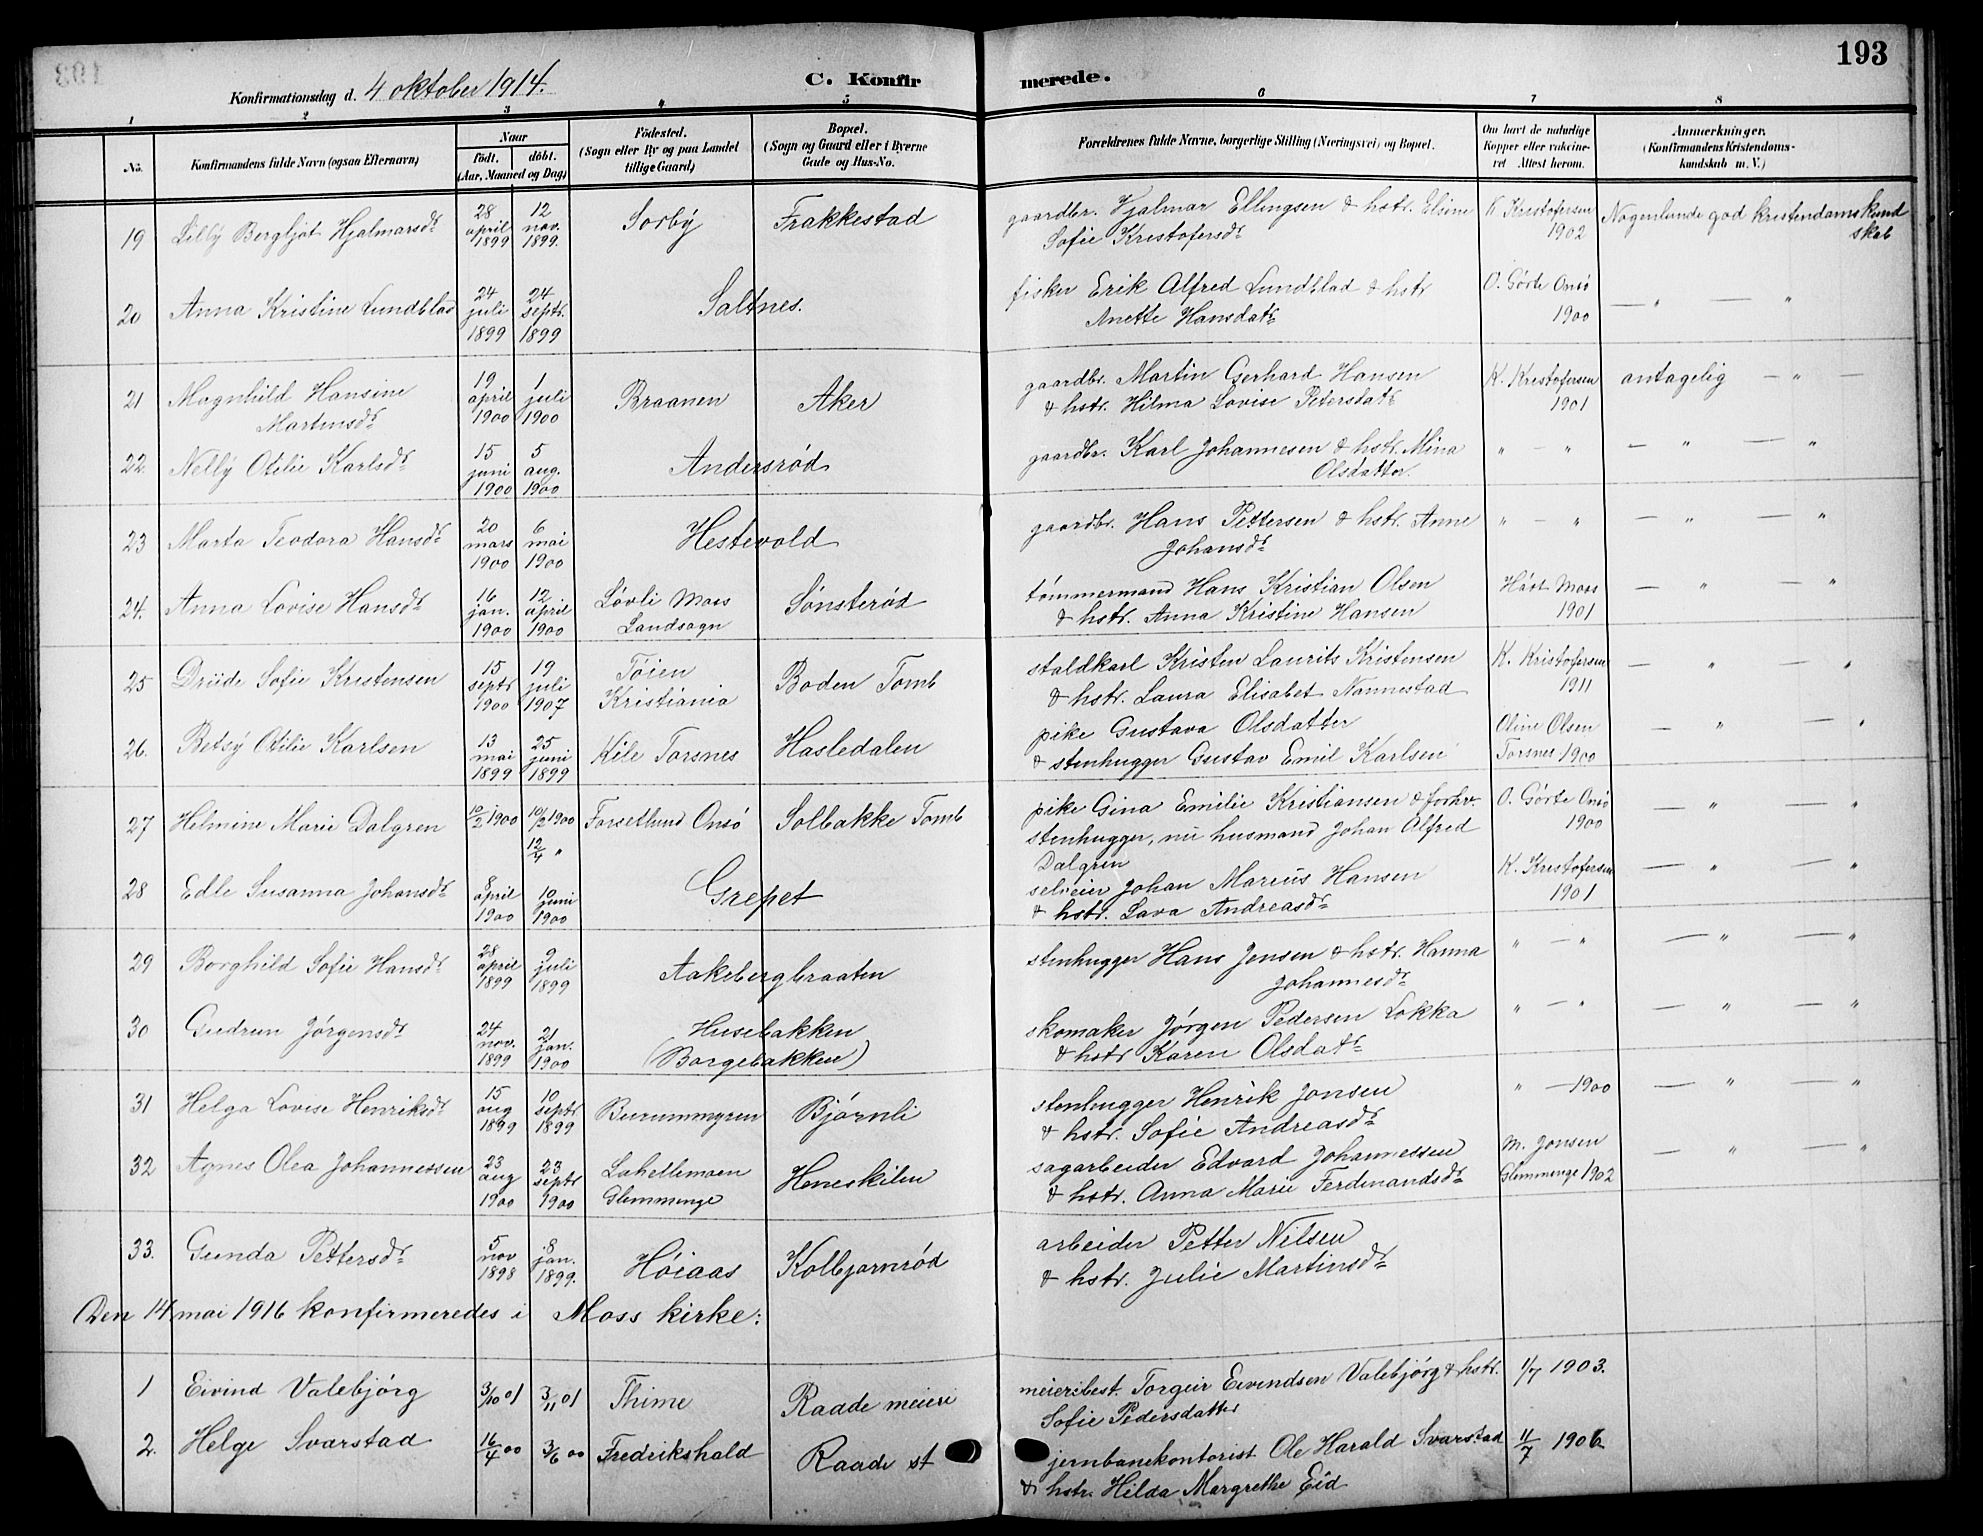 193
Konfirmationsdag d. 4 oktober 1914.
C. Konfirmerede.
1 2 3 4 5 6 7 8
No.
Konfirmandens fulde Navn (ogsaa Efternavn)
Naar
födt. döbt.
(Aar, Maaned og Dag)
Födested.
(Sogn eller By og paa Landet
tillige Gaard)
Bopæl.
(Sogn og Gaard eller i Byerne
Gade og Hus-No.
Forældrenes fulde Navne, borgerlige Stilling (Næringsvei) og Bopæl.
Om havt de naturlige
Kopper eller vakcine-
ret Attest herom.
Anmærkninger.
(Konfirmandens Kristendoms-
kundskab m. V.)
19 Lilly Bergljot Hjalmarsdr 28 april 1899 12 nov. 1899. Sorby Frakkestad gaardbr. Hjalmar Ellingsen & hstr. Elsine K. Kristofersen Nogenlunde god kristendomskund
Sofie Kristofersdr 1902 skab
20 Anna Kristine Lundblad 24 juli 1899 24 septr. 1899 Saltnes. fisker Erik Alfred Lundblad & hstr O. Görte Onsö — " — "
Anette Hansdatr 1900
21 Magnhild Hansine 19 april 1900 1 juli 1900 Braanen Aker gaardbr. Martin Gerhard Hansen K. Kristofersen antagelig — " —
Martinsdr & hstr. Hilma Lovise Petersdatr 1901
22 Nelly Otilie Karlsdr 15 juni 1900 5 aug. 1900 Andersrød gaardbr. Karl Johannesen & hstr. Mina " — " — " — "
Olsdatter.
23 Marta Teodora Hansdr 20 mars 1900 6 mai 1900 Hestevold gaardbr. Hans Pettersen & hstr. Anne " — " — " — "
Johansdr
24. Anna Lovise Hansdr 16 jan. 1900 12 april 1900 Løvli Moss Sønsterød tømmermand Hans Kristian Olsen Moss — " — "
Landsogn & hstr. Anna Kristine Hansen 1901
25 Drüde Sofie Kristensen 15 septr 1900 19 juli 1907 Töien Boden Tomb staldkarl Kristen Laurits Kristensen K. Kristofersen — " — "
Kristiania & hstr. Laura Elisabet Nannestad 1911
26. Betsy Otilie Karlsen 13 mai 1899 25 juni 1899 Kile Torsnes Hasledalen pike Gustava Olsdatter Oline Olsen — " — "
& stenhugger Gustav Emil Karlsen Torsnes 1900
27 Helmine Marie Dalgren 10/2 1900 10/2 1900 Forsetlund Onsö Solbakke Tomb pike Gina Emilie Kristiansen & forhv. O. Görte Onsö — " — "
12/4 " stenhugger, nu husmand Johan Alfred 1900
Dalgren
28 Edle Susanna Johansdr 8 april 1900 10 juni 1900 Grepet selveier Johan Marius Hansen K. Kristofersen — " — "
& hstr. Lava Andreasdr 1901
29 Borghild Sofie Hansdr 28 april 1899 9 juli 1899 Aakebergbraaten stenhugger Hans Jensen & hstr. Hanna " — " — " — "
Johannesdr
30 Gudrun Jørgensdr 24 nov. 1899 21 jan. 1900 Husebakken skomaker Jørgen Pedersen Lökka " — " — " — "
(Borgebakken) & hstr Karen Olsdatr
31 Helga Lovise Henriksdr 15 aug 1899 10 septr 1899 Burummyren Bjørnli stenhugger Henrik Jonsen " — 1900 — " — "
& hstr. Sofie Andreasdr
32 Agnes Olea Johannessen 23 aug 1900 23 septr 1900 Lahellemoen Heneskilen sagarbeider Edvard Johannessen M. Jonsen — " — "
Glemminge & hstr. Anna Marie Ferdinandsdr Glemminge 1902
33. Gunda Pettersdr 5 nov 1898 8 jan. 1899. Höiaas Kolbjørnrød arbeider Petter Nilsen
& hstr. Julie Martinsdr
Den 14 mai 1916 konfirmeredes i Moss kirke:
1 Eivind Valebjörg 3/10 01 3/11 01 Thime Raade meieri meieribest. Torgeir Eivindsen Valebjörg & hstr. 1/7 1903.
Sofie Pedersdatter
2. Helge Svarstad 16/4 00 3/6 00 Fredrikshald Raade st jernbanekontorist Ole Harald Svarstad 11/7 1906
& hstr. Hilda Margrethe Eid